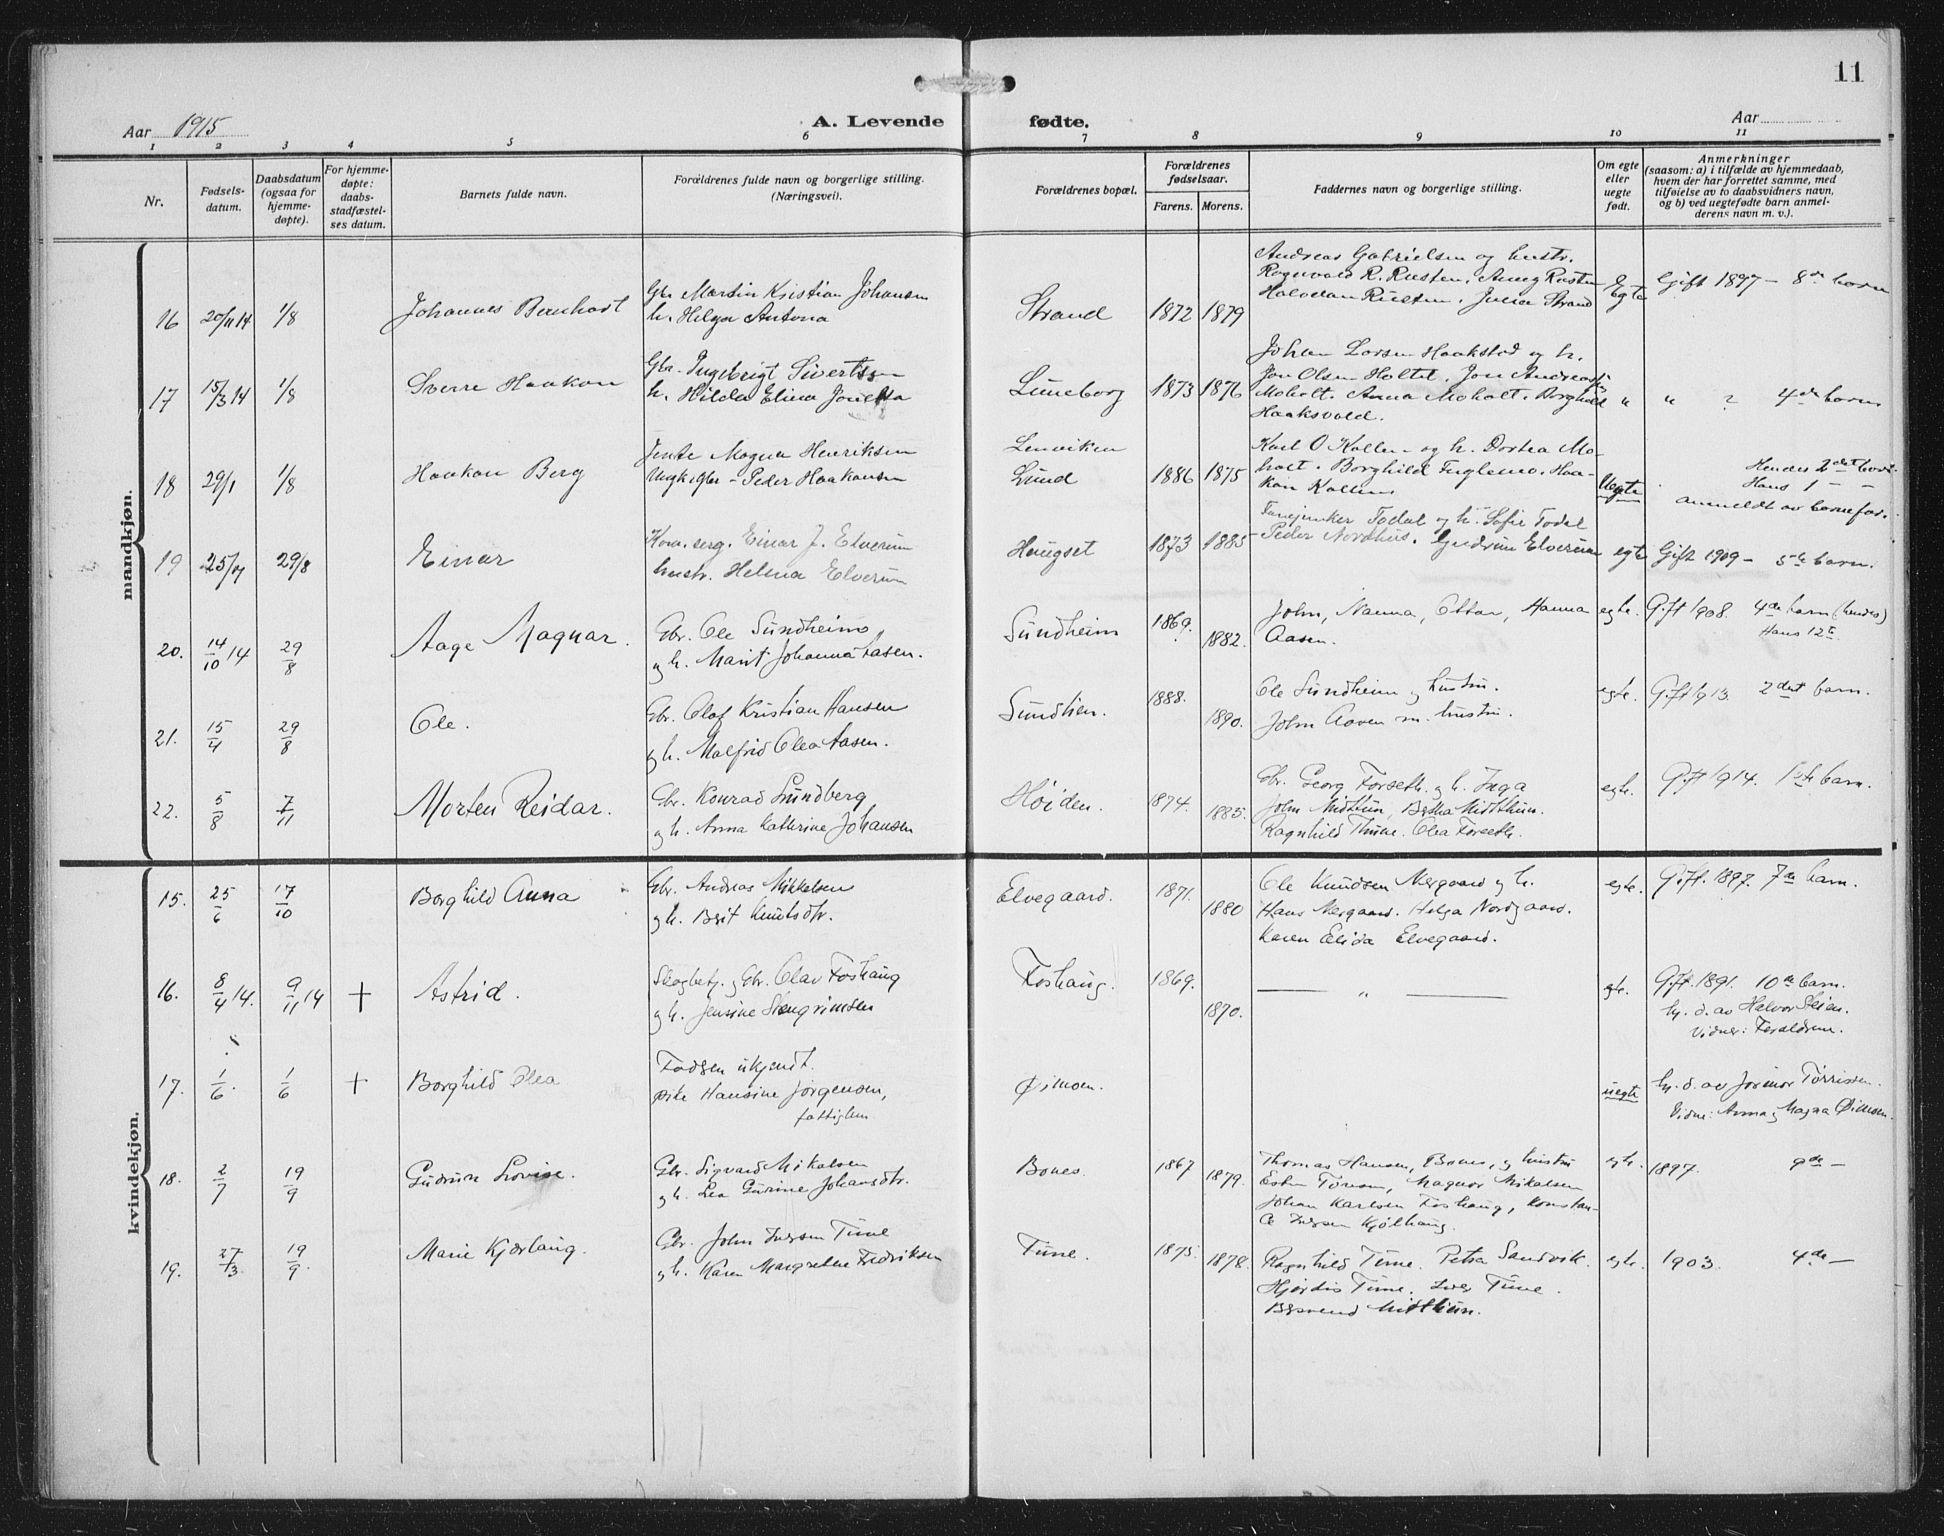 11
Aar 1915
A. Levende fødte.
Aar
1 2 3 4 5 6 7 8 9 10 11
Nr.
Fødsels-
datum.
Daabsdatum
(ogsaa for
hjemme-
døpte).
For hjemme-
døpte:
daabs-
stadfæstel-
ses datum.
Barnets fulde navn.
Forældrenes fulde navn og borgerlige stilling.
(Næringsvei).
Forældrenes bopæl.
Forældrenes
fødselsaar.
Farens. Morens.
Faddernes navn og borgerlige stilling.
Om egte
eller
uegte
født.
Anmerkninger
(saasom: a) i tilfælde av hjemmedaab,
hvem der har forrettet samme, med
tilføielse av to daabsvidners navn,
og b) ved uegtefødte barn anmel-
derens navn m. v.).
mandkjøn.
16 20/11 14 1/8 Johannes Bernhart
Gbr. Martin Kristian Johansen
h. Helga Antona
Strand 1872 1879
Andreas Gabrielsen og hustr.
Rognvald R. Rusten,
Halvdan Rusten. Strand
Egte Gift 1897 – 8de barn
17 15/3 14 1/8 Sverre Haakon
Gbr. Ingebrigt Sivertsen
h. Hilda Elina
Luneborg 1873 1876
Johan Larsen Haakstad og h.
Jon Olsen Holtet. Jon
Moholt. Anna Moholt. Borghild
Haaksvold.
" " ? 4de barn
18 29/1 1/8 Haakon Berg
Jente Magna Henriksen
Ungk. gbr – Peder Haakonsen
Lenviken
Lund 1886 1875
Karl O Kollen – og h. Dortea Mo-
holt. Borghild Fuglemo. Haa-
kon Kollen
Uegte
Hendes 2det barn
Hans 1 – –
anmeldt av barnefar.
19 25/7 29/8 Einar
Kom. serg. Einar J. Elverum
hustr. Helena Elverum
Haugset 1873 1885
Fanejunker Fodal og h. Sofie Fodal
Peder Nordhus. Gudrun Elverum
egte Gift 1909 – 5te barn.
20. 14/10 14 29/8 Aage Magnar.
Gbr. Ole Sundheim
og h. Marit Johanna Aasen.
Sundheim 1869. 1882.
John, Nanna, Ottar, Hanna
Aasen.
egte. Gift 1908. 4de barn (hendes)
Hans 12te.
21. 15/4 29/8 Ole.
Gbr. Olaf Kristian Hansen
og h. Malfrid Olea Aasen.
1888. 1890.
Ole Sundheim og hustru.
John Aasen m. hustru.
egte. Gift 1913. 2det barn.
22. 5/8 7/11 Morten Reidar.
Gbr. Konrad Sundberg
og h. Anna Kathrine Johansen
Høiden. 1874. 1885.
Gbr. Georg Forseth og h. Inga
John Midthun, Midtthun.
Ragnhild Thune. Olea Forseth.
egte. Gift 1914. 1ste barn.
kvindekjøn.
15. 25/6 17/10 Borghild Anna
Gbr. Andreas Mikkelsen
og h. Berit Knutsdtr.
Elvegaard. 1871. 1880
Ole Knudsen Nergaard og h.
Hans Nergaard. Helga Nordgaard.
Karen Elida Elvegaard.
egte. Gift. 1897. 7de barn.
16. 8/4 14. 9/11 14 + Astrid.
Skogbetj. og Gbr. Olav Foshaug
og h. Jensine Stengrimsen
Foshaug. 1869. 1870.
— " —
egte. Gift. 1891. 10de barn.
hj. d. av Halvor Steien.
Vidner: Forældrene.
17. 1/6. 1/6 + Borghild Olea
Faderen ukjendt.
Pike Hansine Jørgensen,
fattiglem
Øimoen.
uegte
hj. d. av Jørgine Tørrissen.
Vidne: Anna og Magna Øimoen.
18. 2/7 19/9 Gudrun Lovise.
Gbr. Sigvard Mikalsen
og h. Lea Gurine Johansdtr.
Bones. 1867 1879.
Thomas Hansen, Bones, og hustru
Magnor Mikalsen
Johan Karlsen Foshaug, Konstan-
ce Iversen Kjølhaug.
egte. 1897. 9de –
19. 27/3. 19/9. Marie Kjærlaug.
Gbr. John Iversen Tune
og h. Karen Margrethe Fredriksen
Tune. 1875. 1878.
Ragnhild Tune. Petra Sandvik.
Hjørdis Tune. Iver Tune.
Midtthun.
egte. 1903. 4de –